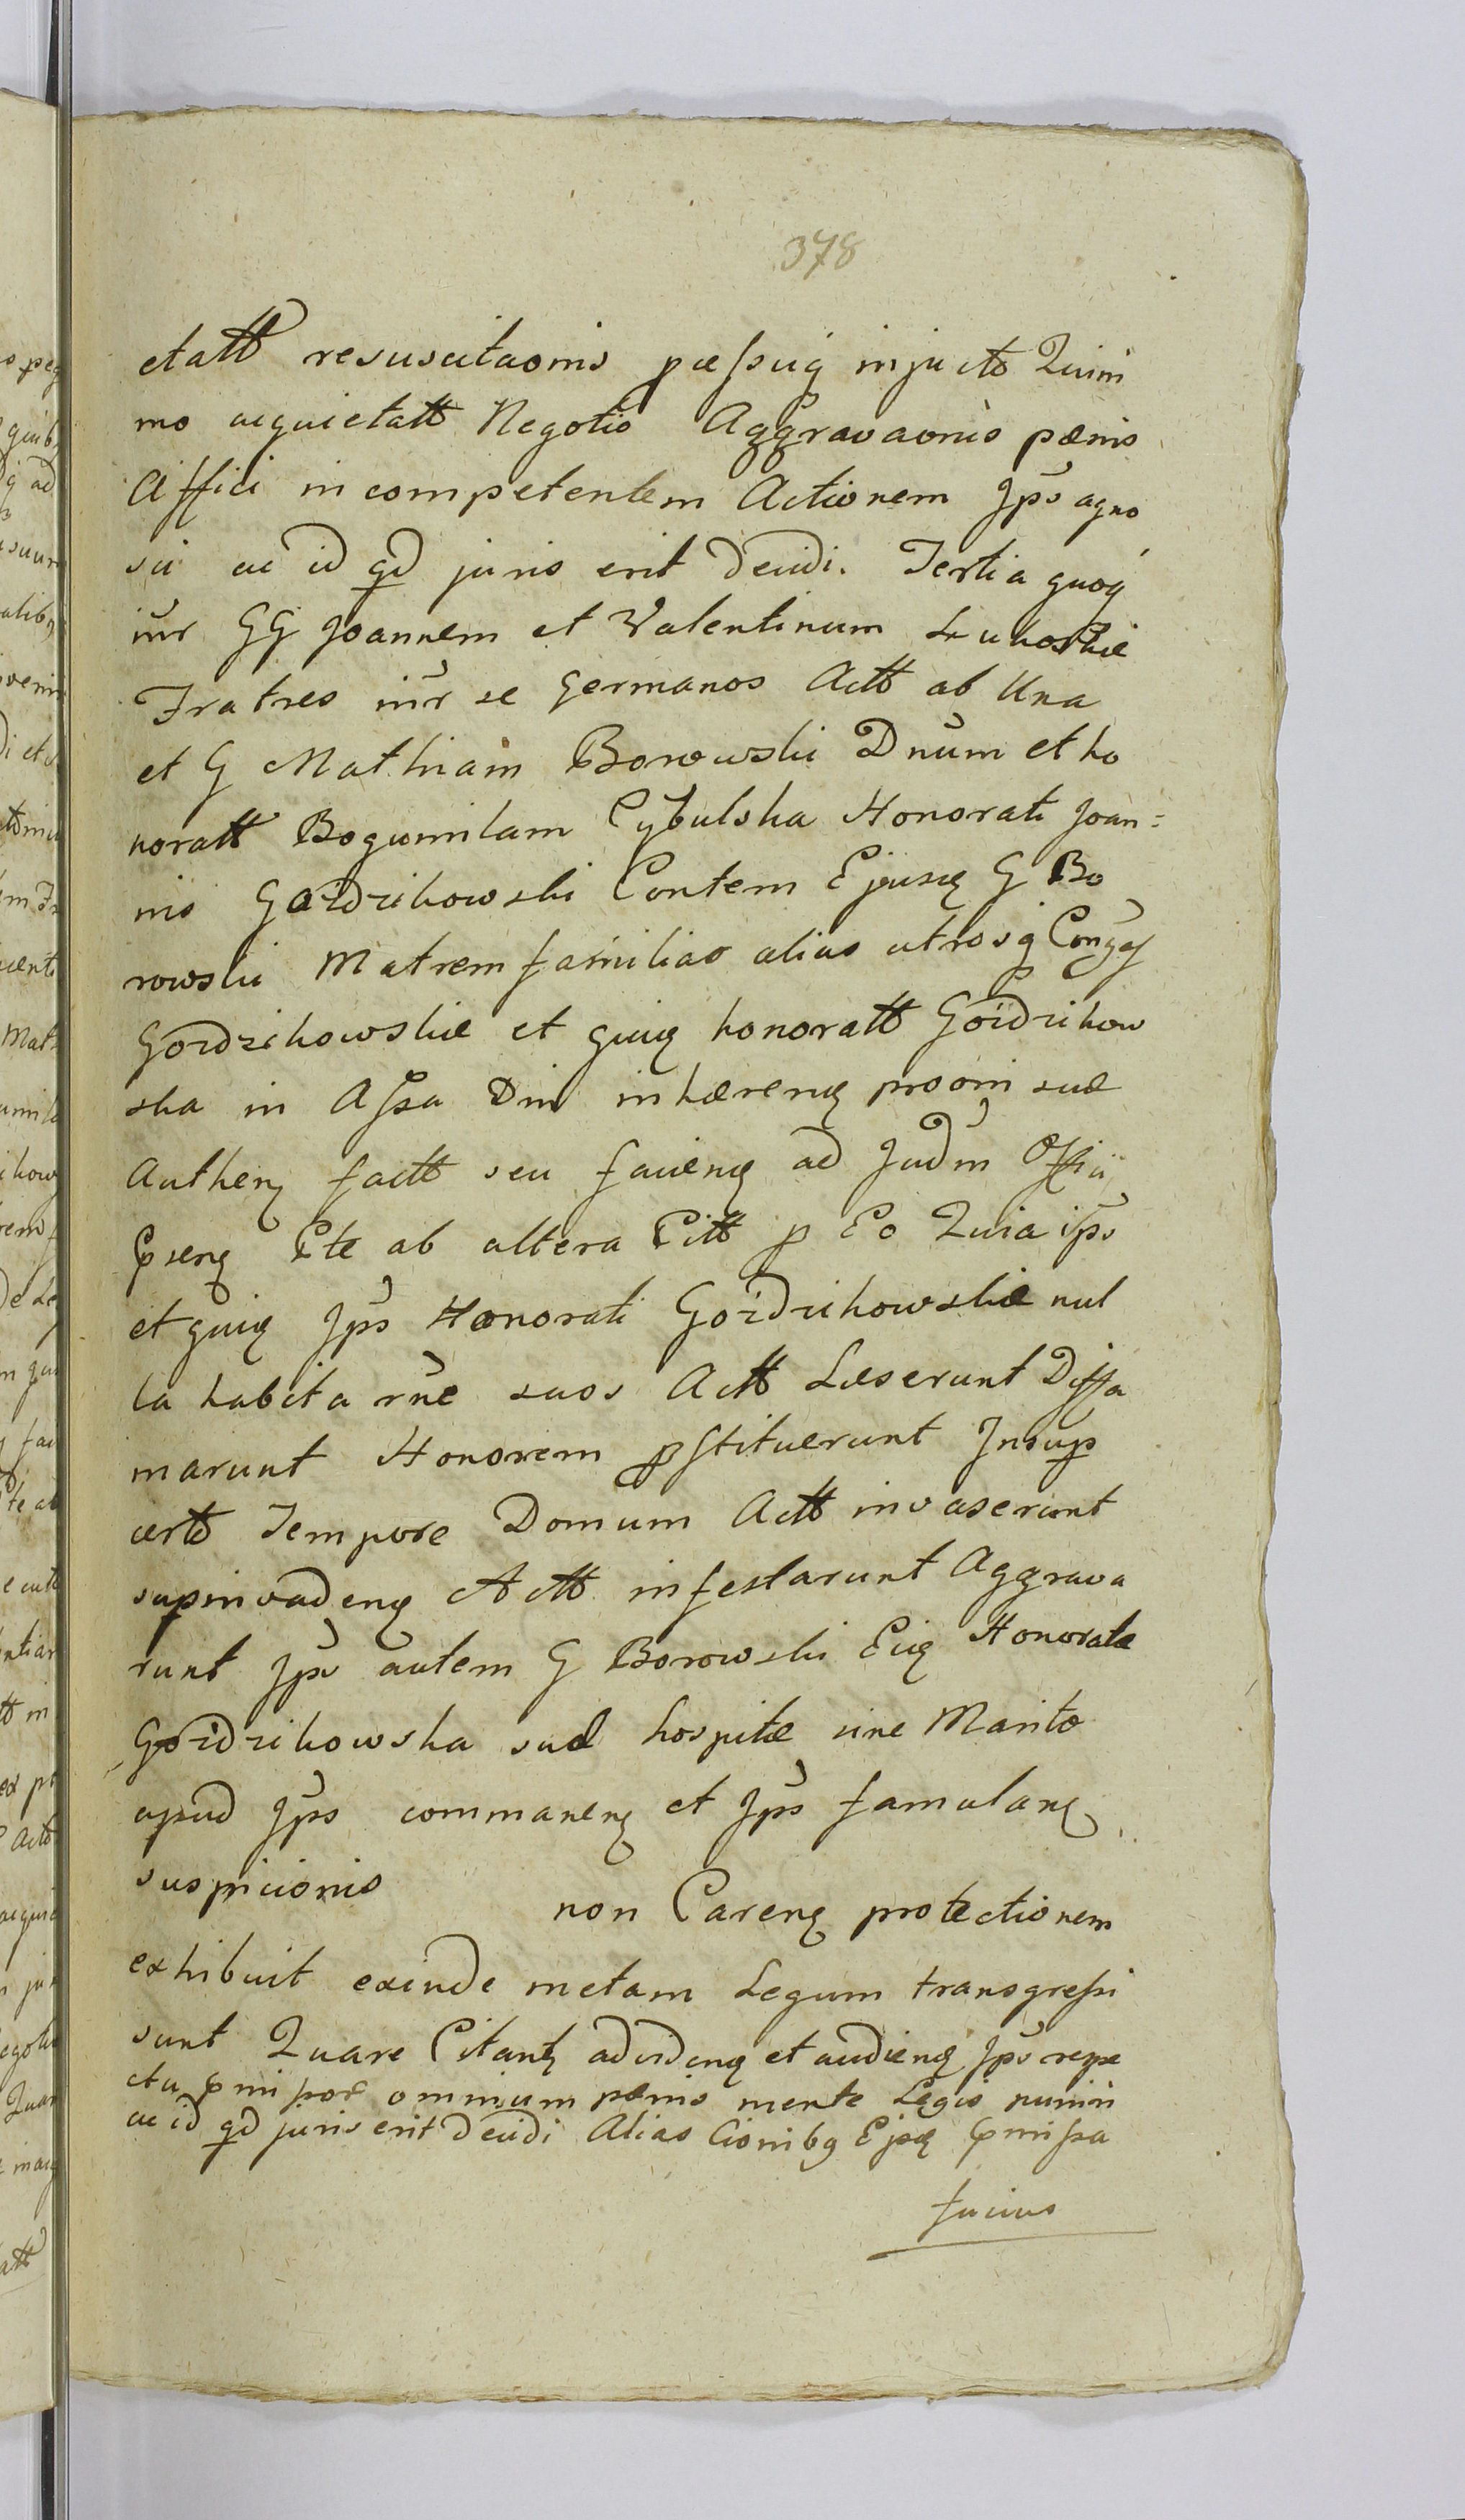 378
etatt resuscitaonis pæssuq injucto Quini
mo acquietatt Negotio Aggravaonis pænis
Affici in competentem Actionem Jps agno
sci ac id qd juris erit decidi. Tertia quoq
inr GG Joannem et Valentinum Lukoskie
Fratres inr se Germanos Actt ab Una
et G Mathiam Borowski Dnum et ho
noratt Bogumilam Cybulska Honorati Joan=
nis Gozdzikowski Contem Ejusq G Bo
rowski Matrem familias alias utrosq Conjgg
Gozdzikowskie et quiq honoratt Gozdzikow
ska in Assa Dni inhærenq proōni suæ
Authenq factt seu facienq ad Judm Offii
Psenq Pte ab altera Citt p Eo Quia ips
et quiq Jps Honorati Gozdzikowskie nul
la habita rne suos Actt Læserunt Diffa
marunt Honorem pstituerunt Insup
certo Tempore Domum Actt invaserunt
supinvadenq Actt infestarunt Aggrava
runt Jps autem G Borowski Eiq Honorate
Gozdzikowska suæ hospitæ sine Marito
apud Jps commanenq et Jps famulanq
suspicionis non Carenq protectionem
exhibuit exinde metam Legum transgressi
sunt Quare Citantq advidenq et audienq Jps respe
ctu pmissor omnium pænis mente Legis puniri
ac id qd juris erit decidi Alias Cionibq Ejsq pmissa
fucius